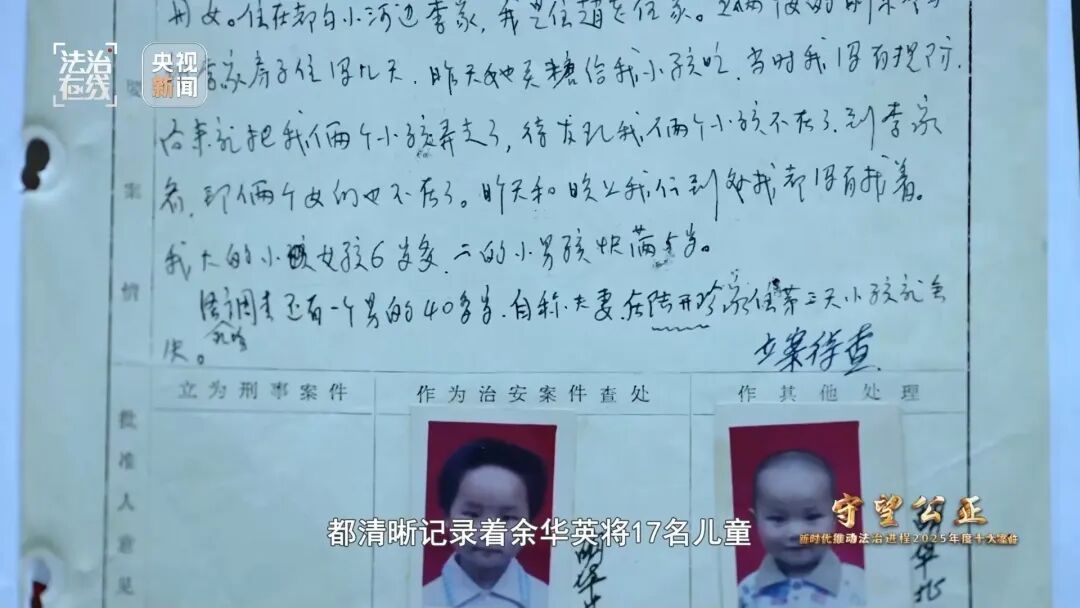 法治
在线
央视
新闻
用女。住在都白小河边李家，我是住赵
李家房子住得几天，昨天她买糖给我小孩吃，当时我没有提防，
后来就把我们俩个小孩弄走了，待发现我们俩个小孩不在了，到李家
看，那俩个女的也不在了。昨天和晚上我们到处找都没有找着。
我大的小孩女孩6岁多，二的小男孩快满5岁。
调查还有一个男的40多岁，自称夫妻，在陆开珍家住第三天小孩就
失。
立案侦查
案
情
立为刑事案件
作为治安案件查处
作其他处理
批准人意见
守望公正
新时代推动法治进程2025年度十大案件
都清晰记录着余华英将17名儿童